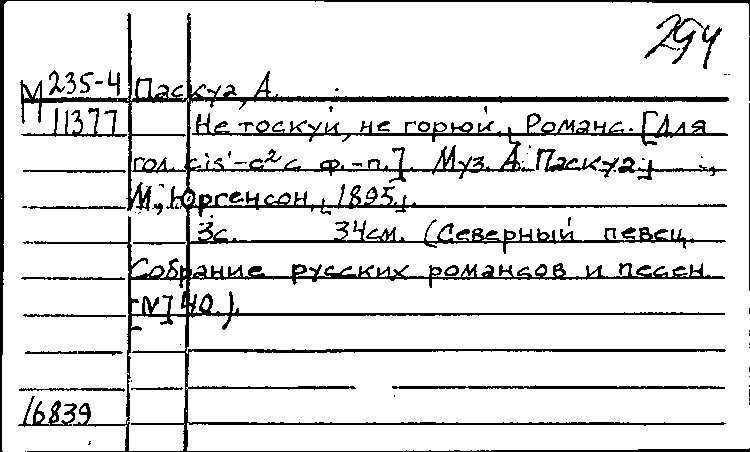 294
М 235-4 Паскуа, А.
11377 Не тоскуй, не горюй. Романс. [Для
гол. cis¹-c² с ф.-п.]. Муз. А. Паскуа.
М., Юргенсон, 1895.
3с. 34см. (Северный певец.
Собрание русских романсов и песен
[N] 40.).
16839